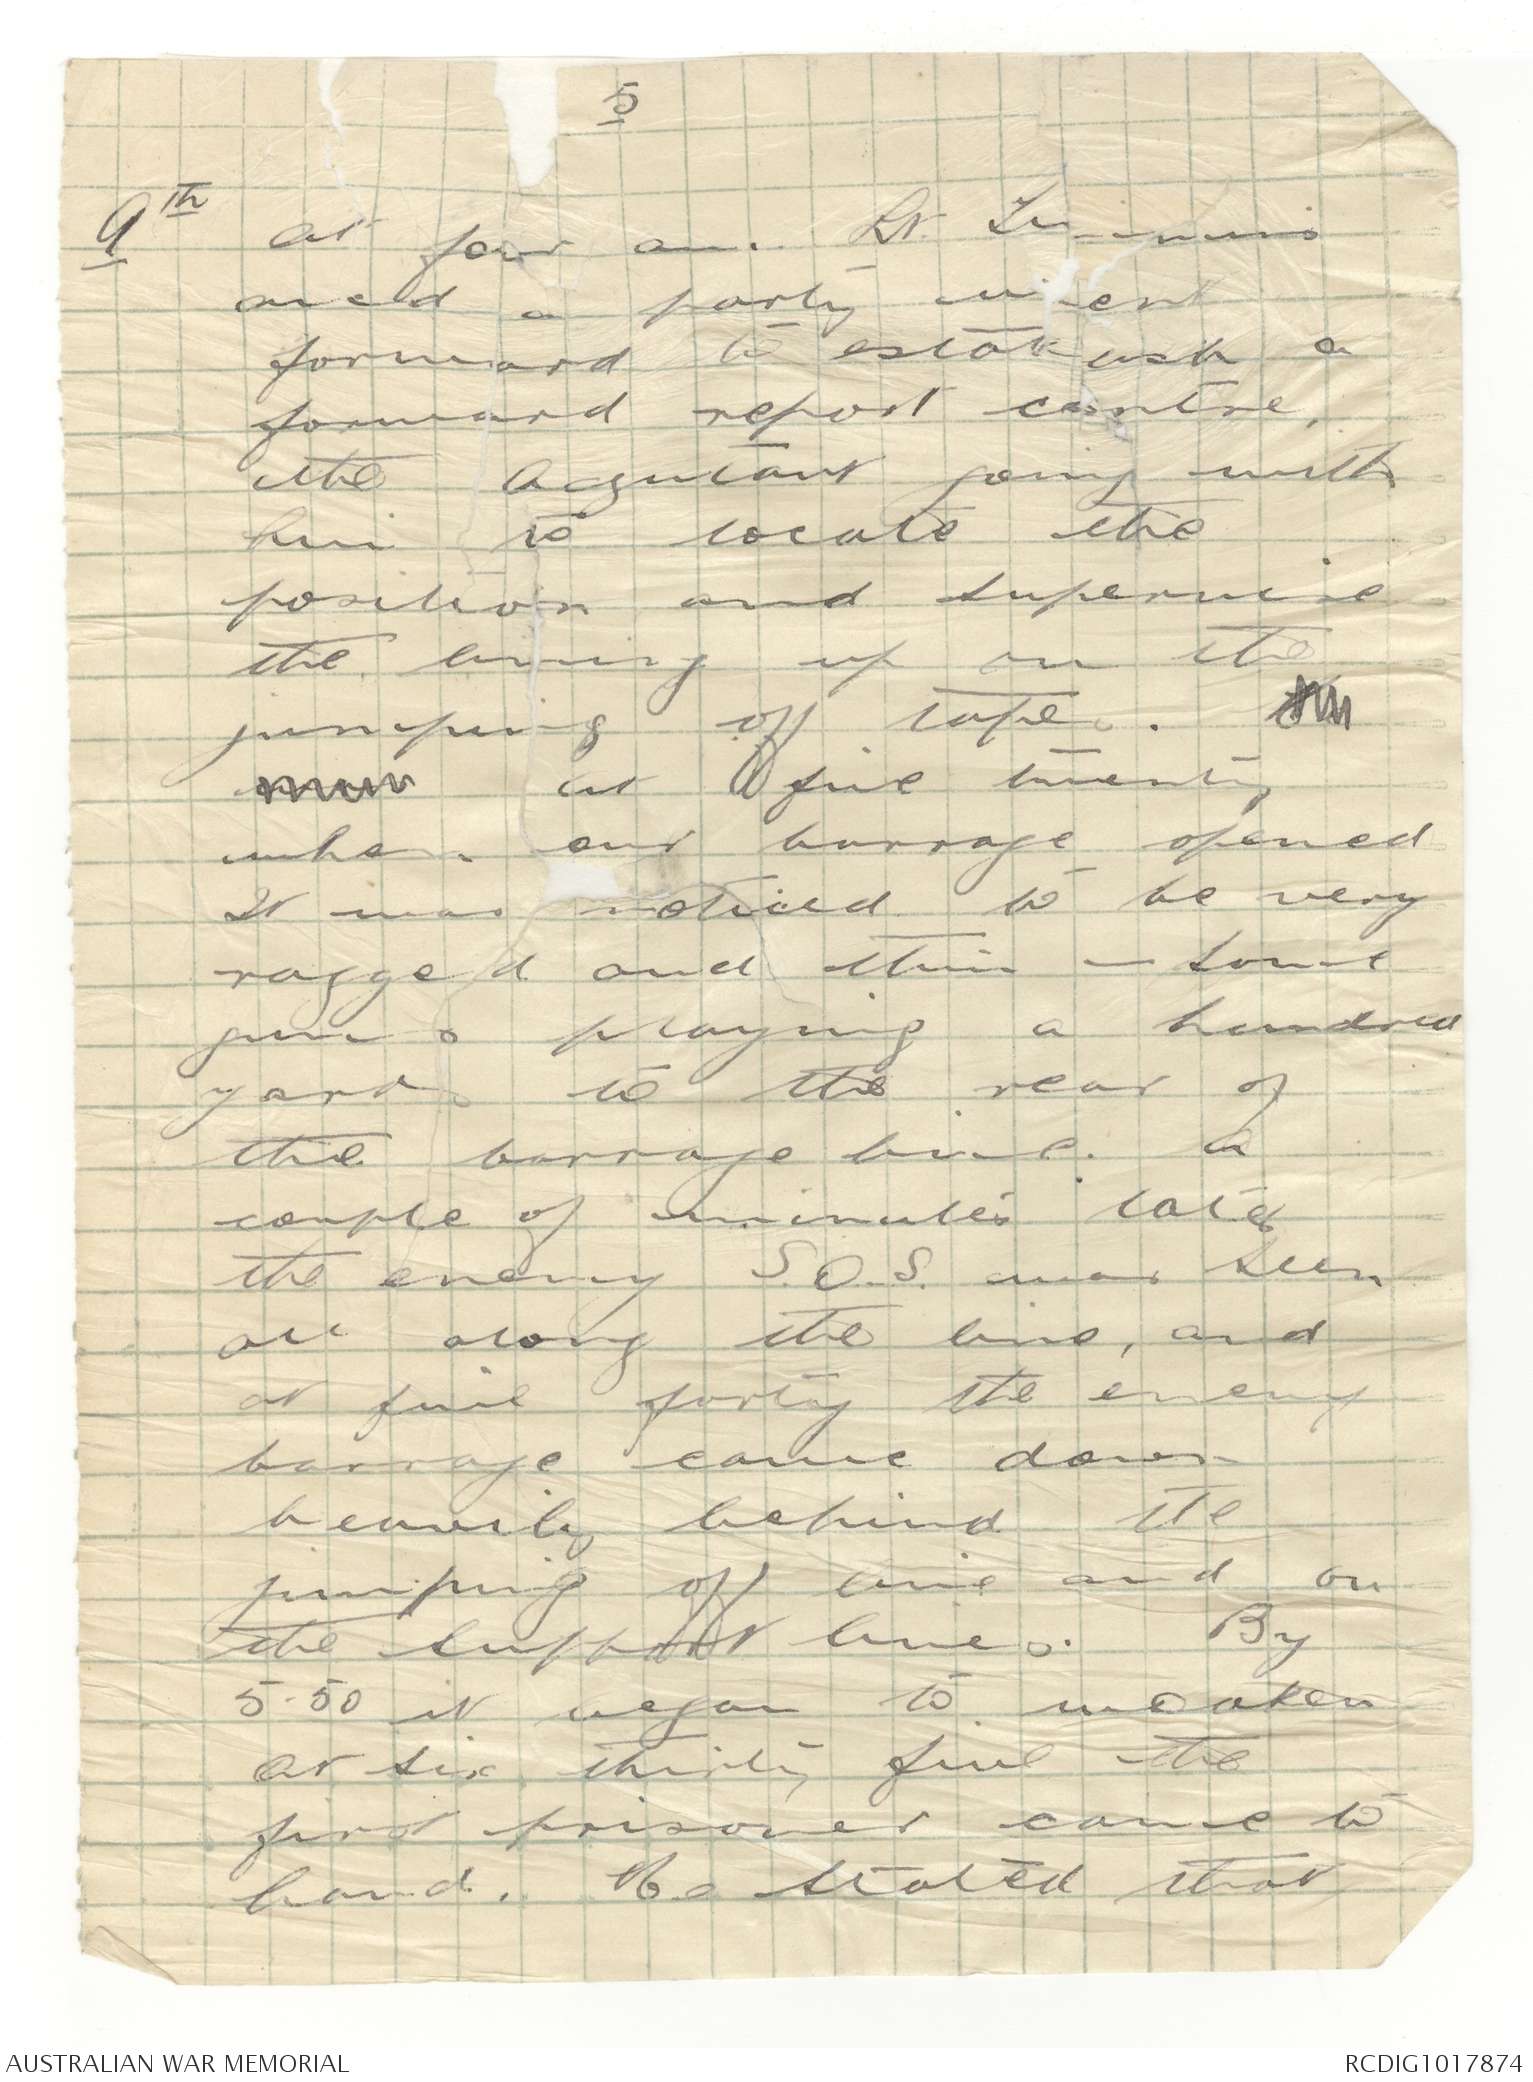 5
9th At four am. Lt.
and a party went
forward to establish a
forward report centre,
the Acjutant going with
him to locate the
position and supervise
the lining up on the
jumping off tapes.
at five twenty
when our barrage opened
It was noticed to be very
ragged and thin — some
guns playing a hundred
yards to the rear of
the barrage line. A
couple of minutes later
the enemy S.O.S. was seen
all along the line, and
at five forty the enemy
barrage came down
heavily behind the
jumping off line and on
the support lines. By
5-50 it began to weaken
At six thirty five the
first prisoner came to
hand. He stated that
AUSTRALIAN WAR MEMORIAL
RCDIG1017874